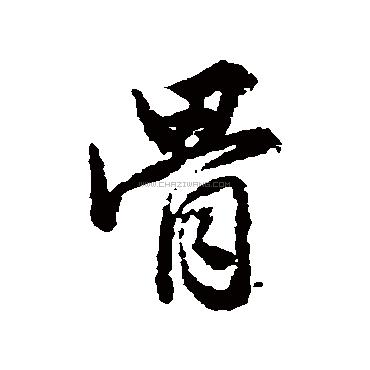 骨
WWW.CHAZIWANG.COM